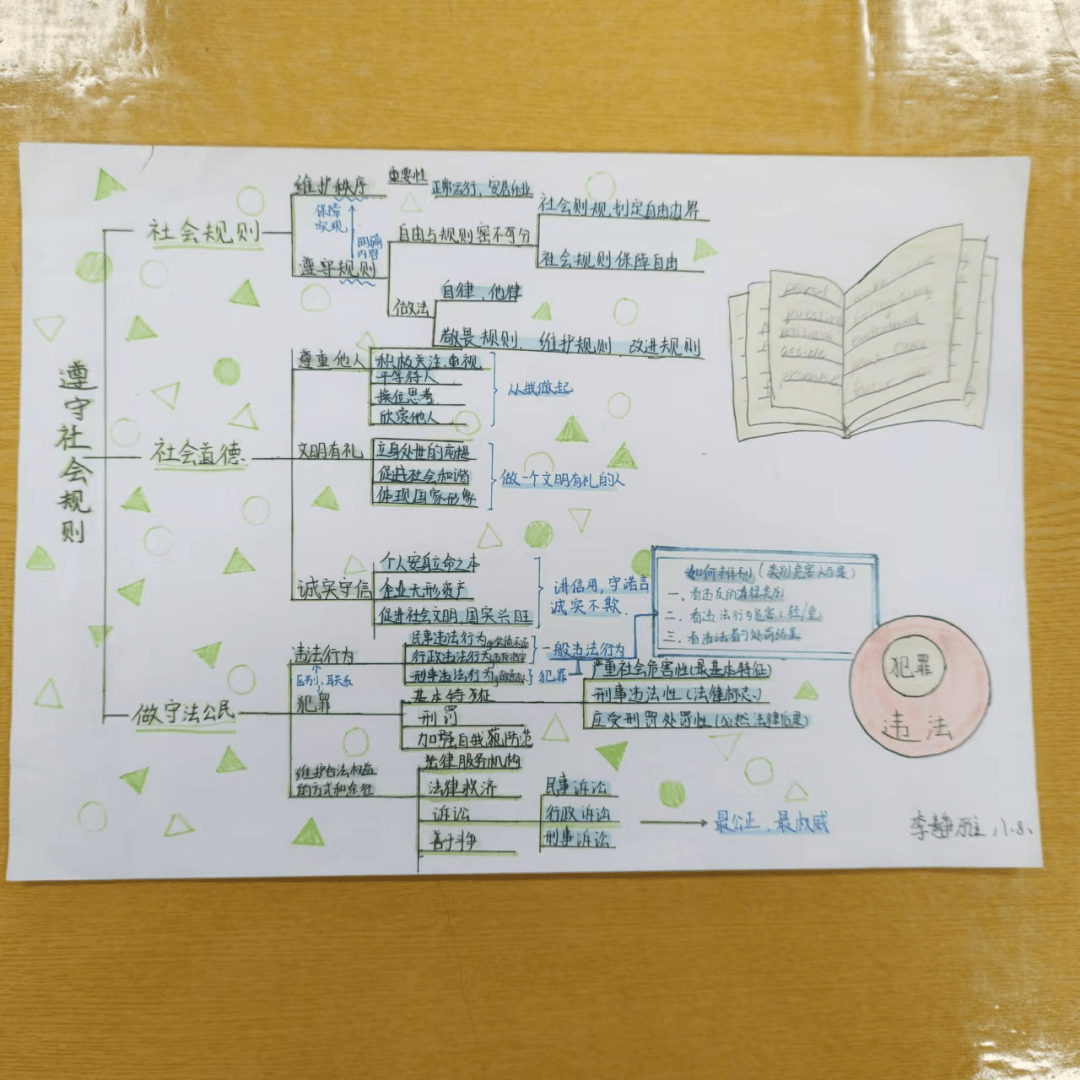 遵守社会规则
社会规则
维护秩序
重要性
正常运行，安居乐业
保障
实现
明确
内容
遵守规则
自由与规则密不可分
社会则规，划定自由边界
社会规则保障自由
做法
自律、他律
敬畏规则 维护规则 改进规则
社会道德
尊重他人
积极关注、重视
平等待人
换位思考
欣赏他人
从我做起
文明有礼
立身处世的前提
促进社会和谐
体现国家形象
做一个文明有礼的人
诚实守信
个人安身立命之本
企业无形资产
促进社会文明、国家兴旺
讲信用，守诺言
诚实不欺．
做守法公民
违法行为
区别、联系
犯罪
民事违法行为
行政违法行为
刑事违法行为
一般违法行为
犯罪
如何判别
一、看违反的
二、看违法行为危害
三、看违法
基本特征
严重社会危害性（最基本特征）
刑事违法性（法律
应受刑罚处罚性（
刑罚
加强自我防范
维护合法权益
的方式和途径
法律服务机构
法律救济
诉讼
善于斗争
民事诉讼
行政诉讼
刑事诉讼
最公正、最权威
犯罪
违法
李静雅 八.8.